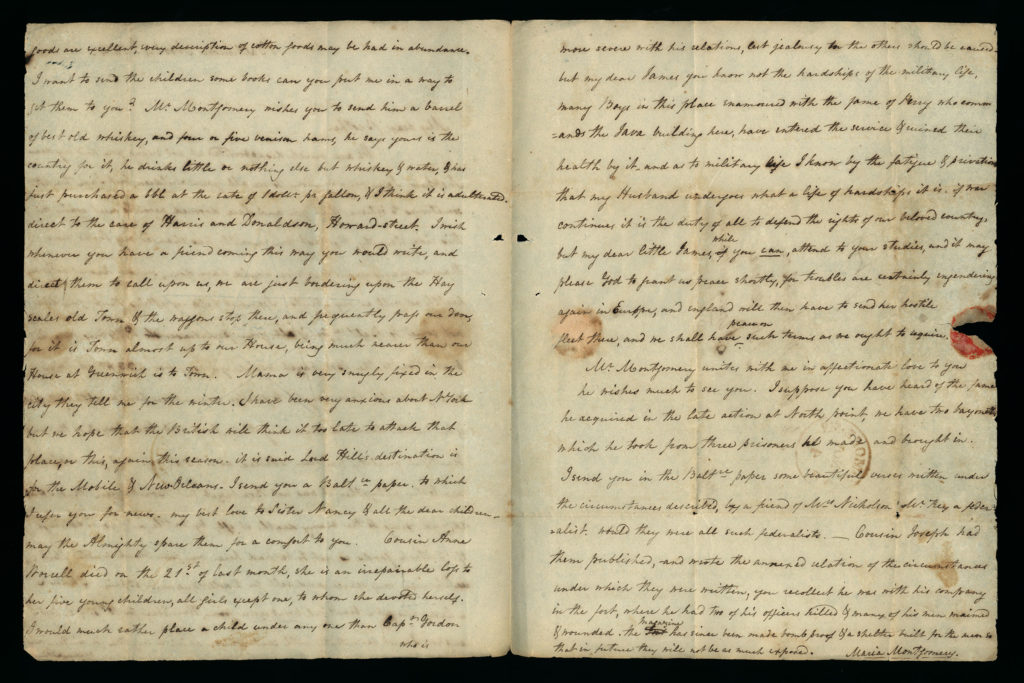 goods are excellent, every description of cotton goods may be had in abundance.
I want to send the children some books can you put me in a way to
get them to you? Mr. Montgomery wishes you to send him a barrel
of best old whiskey, and four or five venison hams, he says yours is the
country for it, he drinks little or nothing else but whiskey & water, & has
just purchased a bbl at the rate of 1 doll: pr gallon, & I think it is adulterated.
direct to the care of Harris and Donaldson, Howard-street. I wish
whenever you have a friend coming this way you would write, and
direct them to call upon us, we are just bordering upon the Hay
scales old Town & the waggons stop there, and frequently pass our door,
for it is Town almost up to our House, being much nearer than our
House at Greenwich is to Town. Mama is very snugly fixed in the
city they tell me for the winter. I have been very anxious about N. York
but we hope that the British will think it too late to attack that
place, or this, again this season. it is said Lord Hill's destination is
for the Mobile & New Orleans. I send you a Balt.re paper. to which
I refer you for news. my best love to Sister Nancy & all the dear children
may the Almighty spare them for a comfort to you. Cousin Anne
Worrell died on the 21st of last month, she is an irrepairable loss to
her five young children, all girls except one, to whom she devoted herself.
I would much rather place a child under any one than Capn. Gordon
who is
more severe with his relations, lest jealousy in the others should be caused
but my dear James you know not the hardships of the military life,
many Boys in this place enamoured with the fame of Perry who comm
=ands the Java building here, have entered the service & ruined their
health by it, and as to military life I know by the fatigue & privations
that my Husband undergoes what a life of hardships it is. if war
continues it is the duty of all to defend the rights of our beloved country,
but my dear little James, while you can, attend to your studies, and it may
please God to grant us peace shortly, for troubles are certainly engendering
again in Europe, and england will then have to send her hostile
fleet there, and we shall have peace on such terms as we ought to require.
Mr. Montgomery unites with me in affectionate love to you
he wishes much to see you. I suppose you have heard of the fame
he acquired in the late action at North point, we have two bayonets
which he took from three prisoners he made and brought in.
I send you in the Balt.re paper some beautiful verses written under
the circumstances described, by a friend of Mrs. Nicholson's Mr. Key a feder
=alist. would they were all such federalists. — Cousin Joseph had
them published, and wrote the annexed relation of the circumstances
under which they were written, you recollect he was with his company
in the fort, where he had two of his officers killed & many of his men maimed
& wounded. the magazine has since been made bomb proof & a shelter built for the men so
that in future they will not be as much exposed. Maria Montgomery.